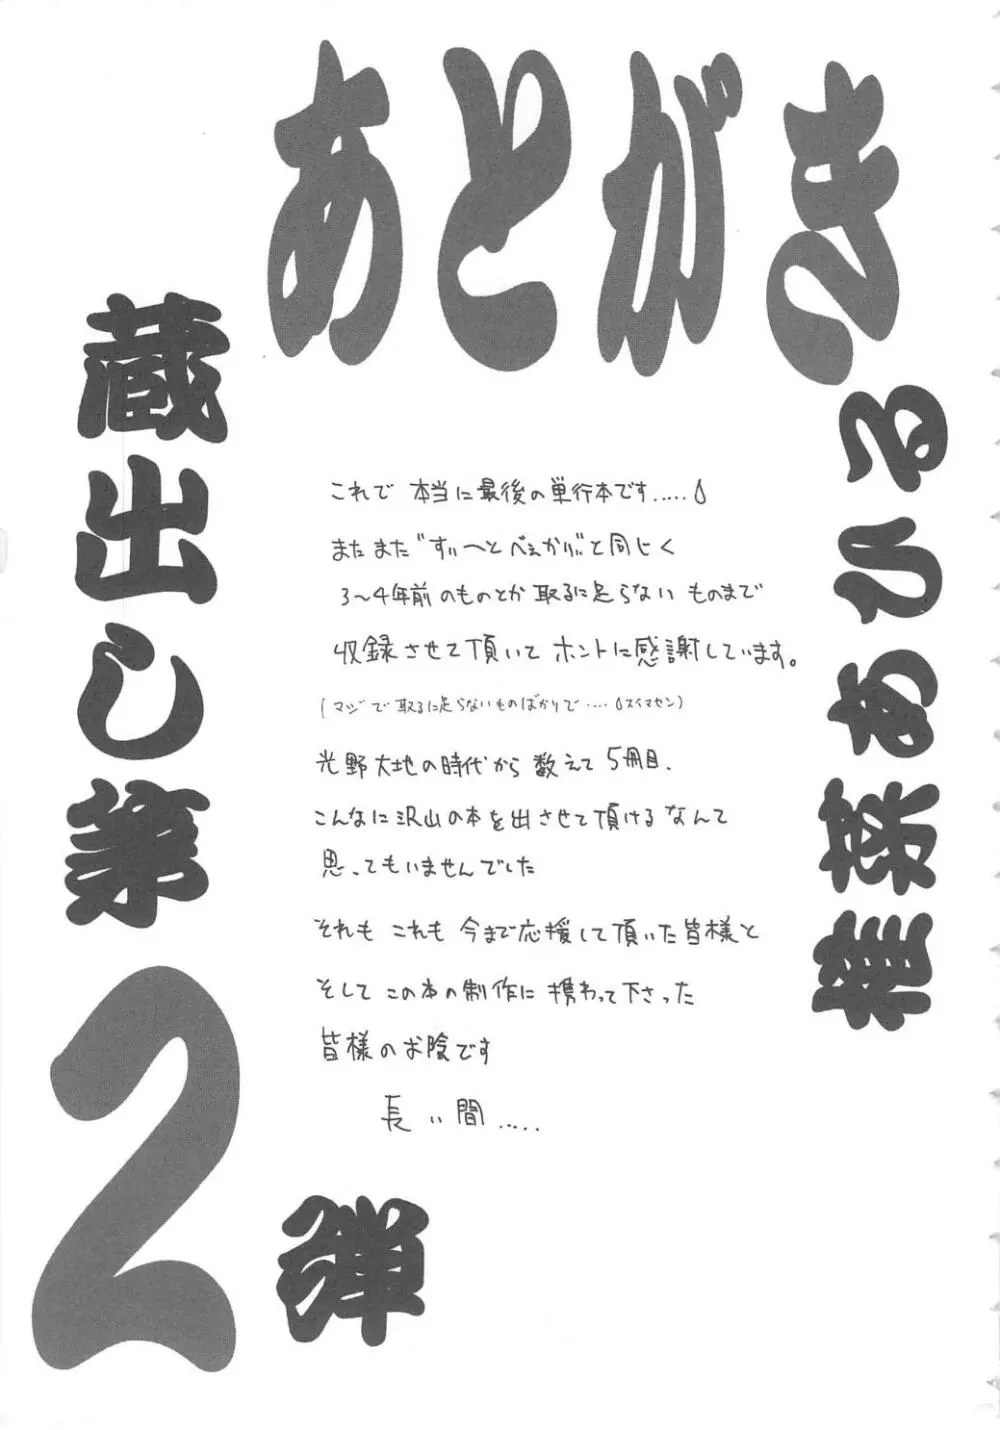 あとがき
権茶あひる
蔵出し第2弾
これで 本当に最後の単行本です.....
またまた"すぃ〜とべぇかりぃ"と同じく
3〜4年前のものとか取るに足らないものまで
収録させて頂いて ホントに感謝しています。
(マジで取るに足らないものばかりで....スイマセン)
光野大地の時代から 数えて5冊目、
こんなに沢山の本を出させて頂けるなんて
思ってもいませんでした
それも これも 今まで応援して頂いた皆様と
そして この本の制作に 携わって下さった
皆様のお陰です
長い間.....